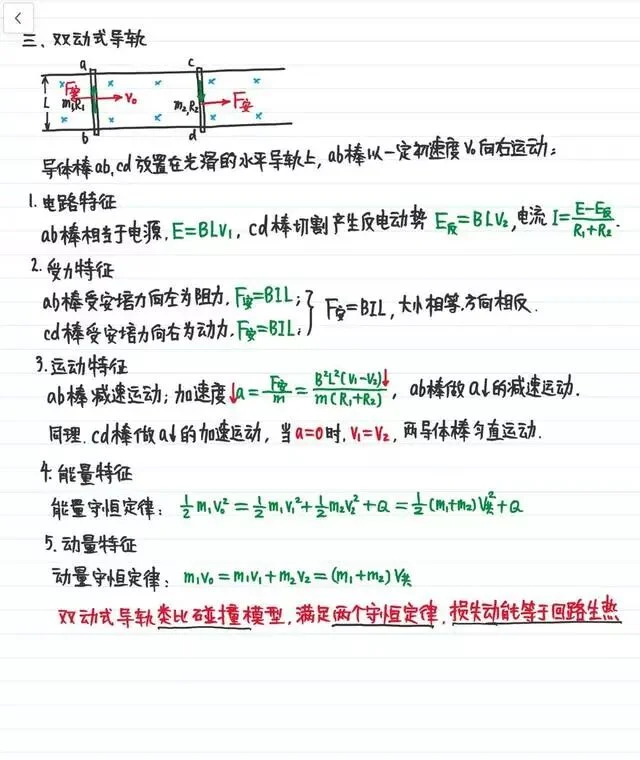 三、双动式导轨
a c
L F安 m₁,R₁ V₀ m₂,R₂ F安
b d
导体棒ab,cd放置在光滑的水平导轨上,ab棒以一定初速度V₀向右运动;
1. 电路特征
ab棒相当于电源,E=BLV₁,cd棒切割产生反电动势 E反=BLV₂,电流 I=(E-E反)/(R₁+R₂).
2. 受力特征
ab棒受安培力向左为阻力,F安=BIL;
cd棒受安培力向右为动力,F安=BIL; } F安=BIL,大小相等.方向相反.
3. 运动特征
ab棒减速运动;加速度↓a=F安/m=B²L²(V₁-V₂)↓/m(R₁+R₂),ab棒做a↓的减速运动.
同理.cd棒做a↓的加速运动,当a=0时,V₁=V₂,两导体棒匀直运动.
4. 能量特征
能量守恒定律:½m₁V₀²=½m₁V₁²+½m₂V₂²+Q=½(m₁+m₂)V共²+Q
5. 动量特征
动量守恒定律:m₁V₀=m₁V₁+m₂V₂=(m₁+m₂)V共
双动式导轨类比碰撞模型,满足两个守恒定律,损失动能等于回路生热